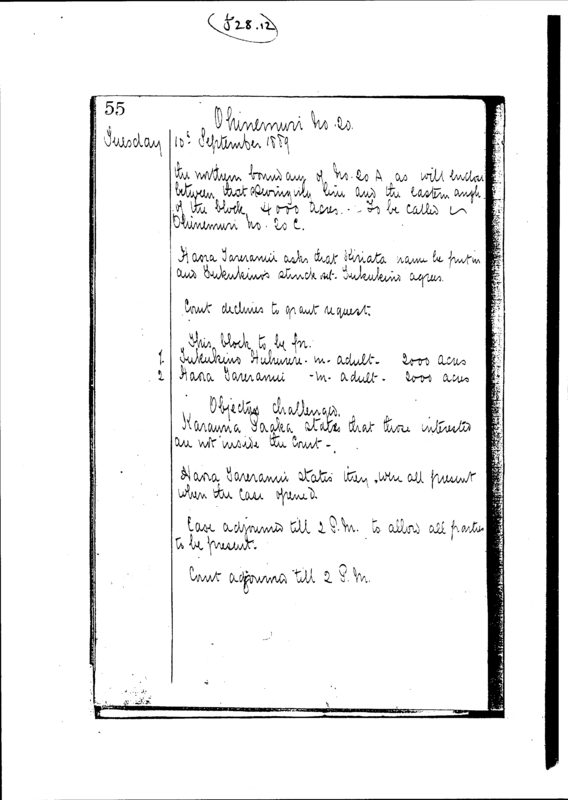 J28.12
55
Ohinemuri No. 20.
Tuesday 10th September 1889
the northern boundary of No. 20 A as will enclose
between that line and the eastern angle
of the block 4000 acres. - To be called
Ohinemuri No. 20 C.
Haora Tareranui asks that name be put in
and Tukukino's struck out. Tukukino agrees.
Court declines to grant request.
This block to be for.
1 Tukukino - m - adult - 2000 acres
2 Haora Tareranui - m - adult - 2000 acres
Objectors challenged.
Karauna states that those interested
are not inside the Court -
Haora Tareranui states they were all present
when the case opened.
Case adjourned till 2 P.M. to allow all parties
to be present.
Court adjourned till 2 P.M.